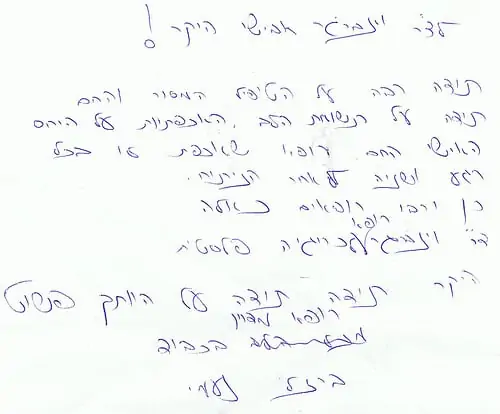 לד"ר וינברגר אבישי היקר!
תודה רבה על הטיפול המסור והחם
תודה על תשומת הלב, האכפתיות על היחס
האישי החם רופא שאוכפת לו בכל
רגע ושניה לאחר הניתוח.
כן ירבו רופאים כאלה
רופא
ד"ר וינברגר לכירורגיה פלסטית
היקר תודה תודה על היותך פשוט
רופא מצוין
בכבוד
ברזל נעמי